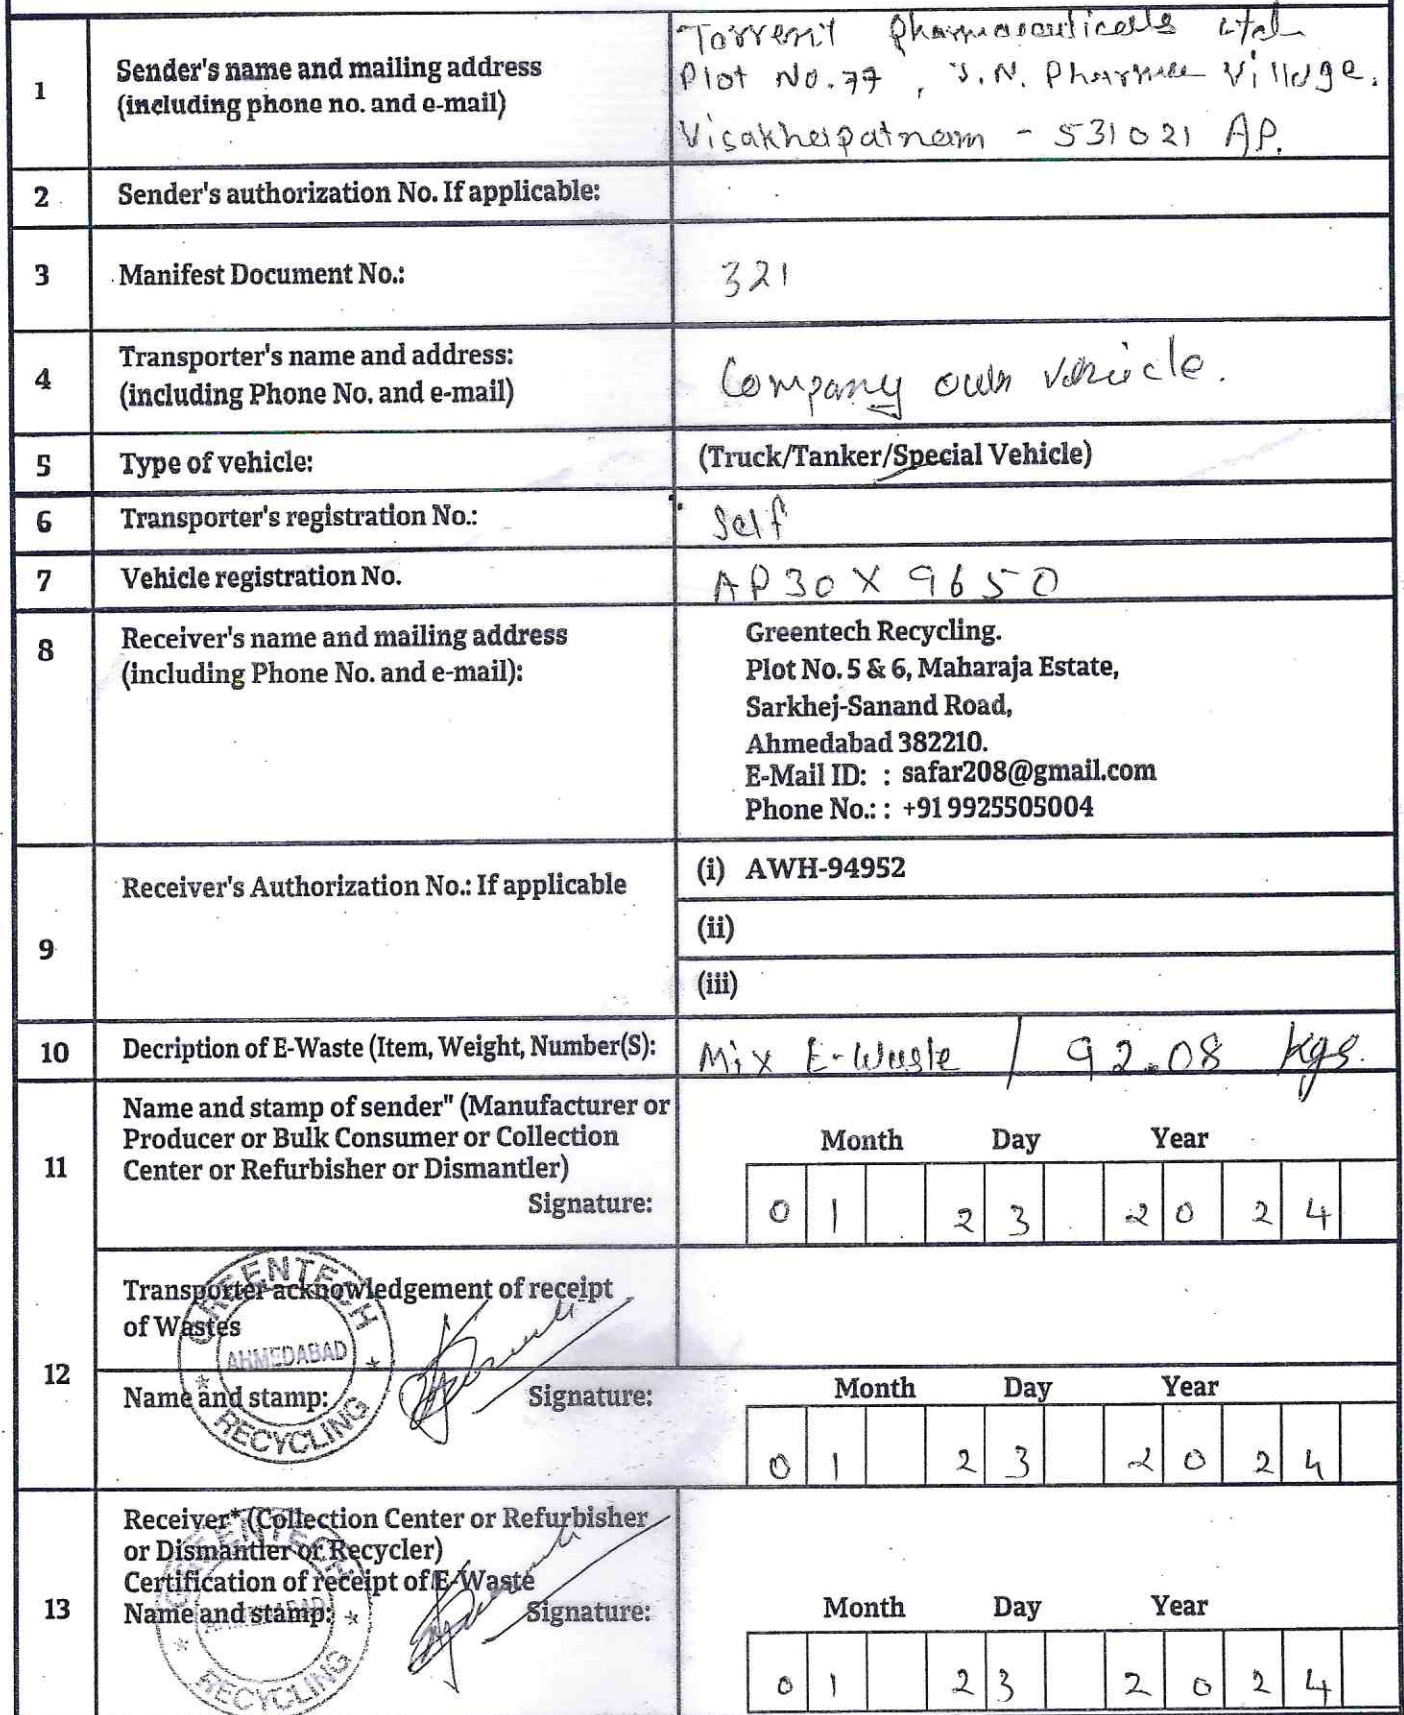 1
Sender's name and mailing address
(including phone no. and e-mail)
Torrent Pharmaceuticals Ltd
Plot No.77, J.N. Pharma Village.
Visakhapatnam - 531021 AP.
2
Sender's authorization No. If applicable:
3
Manifest Document No.:
321
4
Transporter's name and address:
(including Phone No. and e-mail)
Company own vehicle.
5
Type of vehicle:
(Truck/Tanker/Special Vehicle)
6
Transporter's registration No.:
Self
7
Vehicle registration No.
AP30X 9650
8
Receiver's name and mailing address
(including Phone No. and e-mail):
Greentech Recycling.
Plot No. 5 & 6, Maharaja Estate,
Sarkhej-Sanand Road,
Ahmedabad 382210.
E-Mail ID: : safar208@gmail.com
Phone No.: : +91 9925505004
9
Receiver's Authorization No.: If applicable
(i) AWH-94952
(ii)
(iii)
10
Decription of E-Waste (Item, Weight, Number(S):
Mix E-Waste / 92.08 kgs.
11
Name and stamp of sender" (Manufacturer or
Producer or Bulk Consumer or Collection
Center or Refurbisher or Dismantler)
Signature:
Month Day Year
01 23 2024
12
Transporter acknowledgement of receipt
of Wastes
Name and stamp:
Signature:
GREENTECH
AHMEDABAD
RECYCLING
Month Day Year
01 23 2024
13
Receiver* (Collection Center or Refurbisher
or Dismantler or Recycler)
Certification of receipt of E-Waste
Name and stamp:
Signature:
GREENTECH
AHMEDABAD
RECYCLING
Month Day Year
01 23 2024